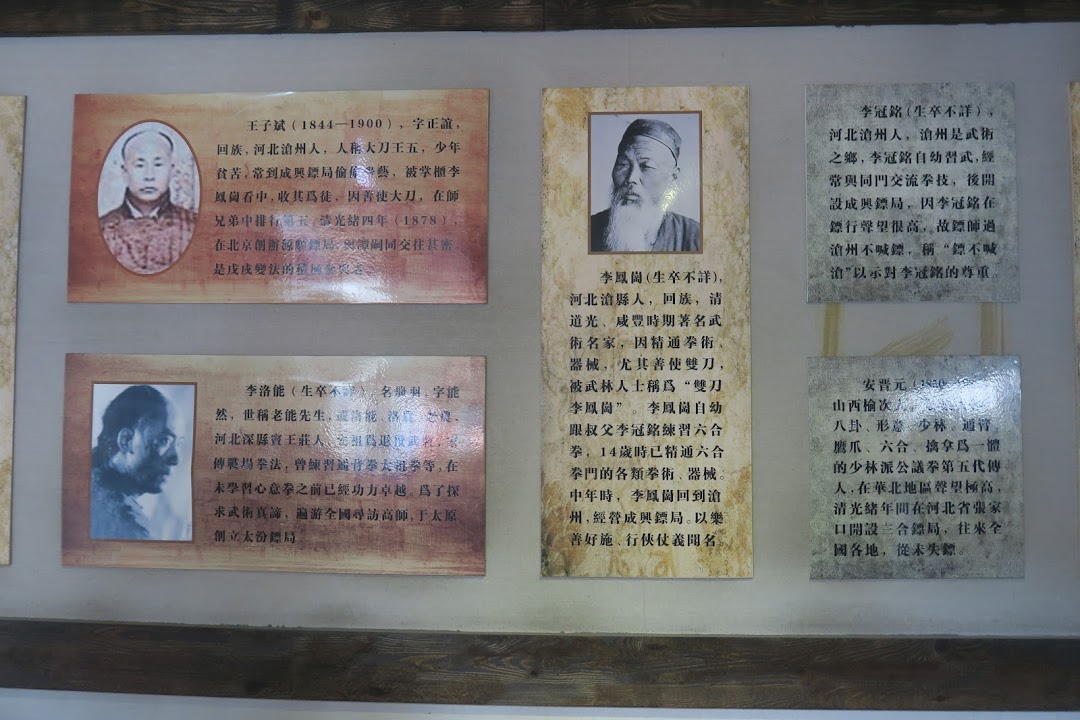 王子斌（1844—1900），字正誼，
回族，河北滄州人，人稱大刀王五，少年
貧苦，常到成興鏢局偷偷學藝，被掌櫃李
鳳崗看中，收其爲徒，因善使大刀，在師
兄弟中排行第五。清光緒四年（1878），
在北京創辦源順鏢局，與譚嗣同交往甚密，
是戊戌變法的積極
李洛能（生卒不詳），名 羽，字能
然，世稱老能先生，
河北深縣竇王莊人，
傳戰場拳法，曾練習通背拳太祖拳等，在
未學習心意拳之前已經功力卓越。爲了探
求武術真諦，遍游全國尋訪高師，于太原
創立太汾鏢局
李鳳崗（生卒不詳），
河北滄縣人，回族，清
道光、咸豐時期著名武
術名家，因精通拳術、
器械，尤其善使雙刀，
被武林人士稱爲“雙刀
李鳳崗”。李鳳崗自幼
跟叔父李冠銘練習六合
拳，14歲時已精通六合
拳門的各類拳術、器械。
中年時，李鳳崗回到滄
州，經營成興鏢局。以樂
善好施、行俠仗義聞名。
李冠銘（生卒不詳），
河北滄州人，滄州是武術
之鄉，李冠銘自幼習武，經
常與同門交流拳技，後開
設成興鏢局，因李冠銘在
鏢行聲望很高，故鏢師過
滄州不喊鏢，稱“鏢不喊
滄”以示對李冠銘的尊重。
安晋元（18
山西榆次
八卦、形意、少林、通臂、
鷹爪、六合、擒拿爲一體
的少林派公議拳第五代傳
人，在華北地區聲望極高，
清光緒年間在河北省張家
口開設三合鏢局，往來全
國各地，從未失鏢。